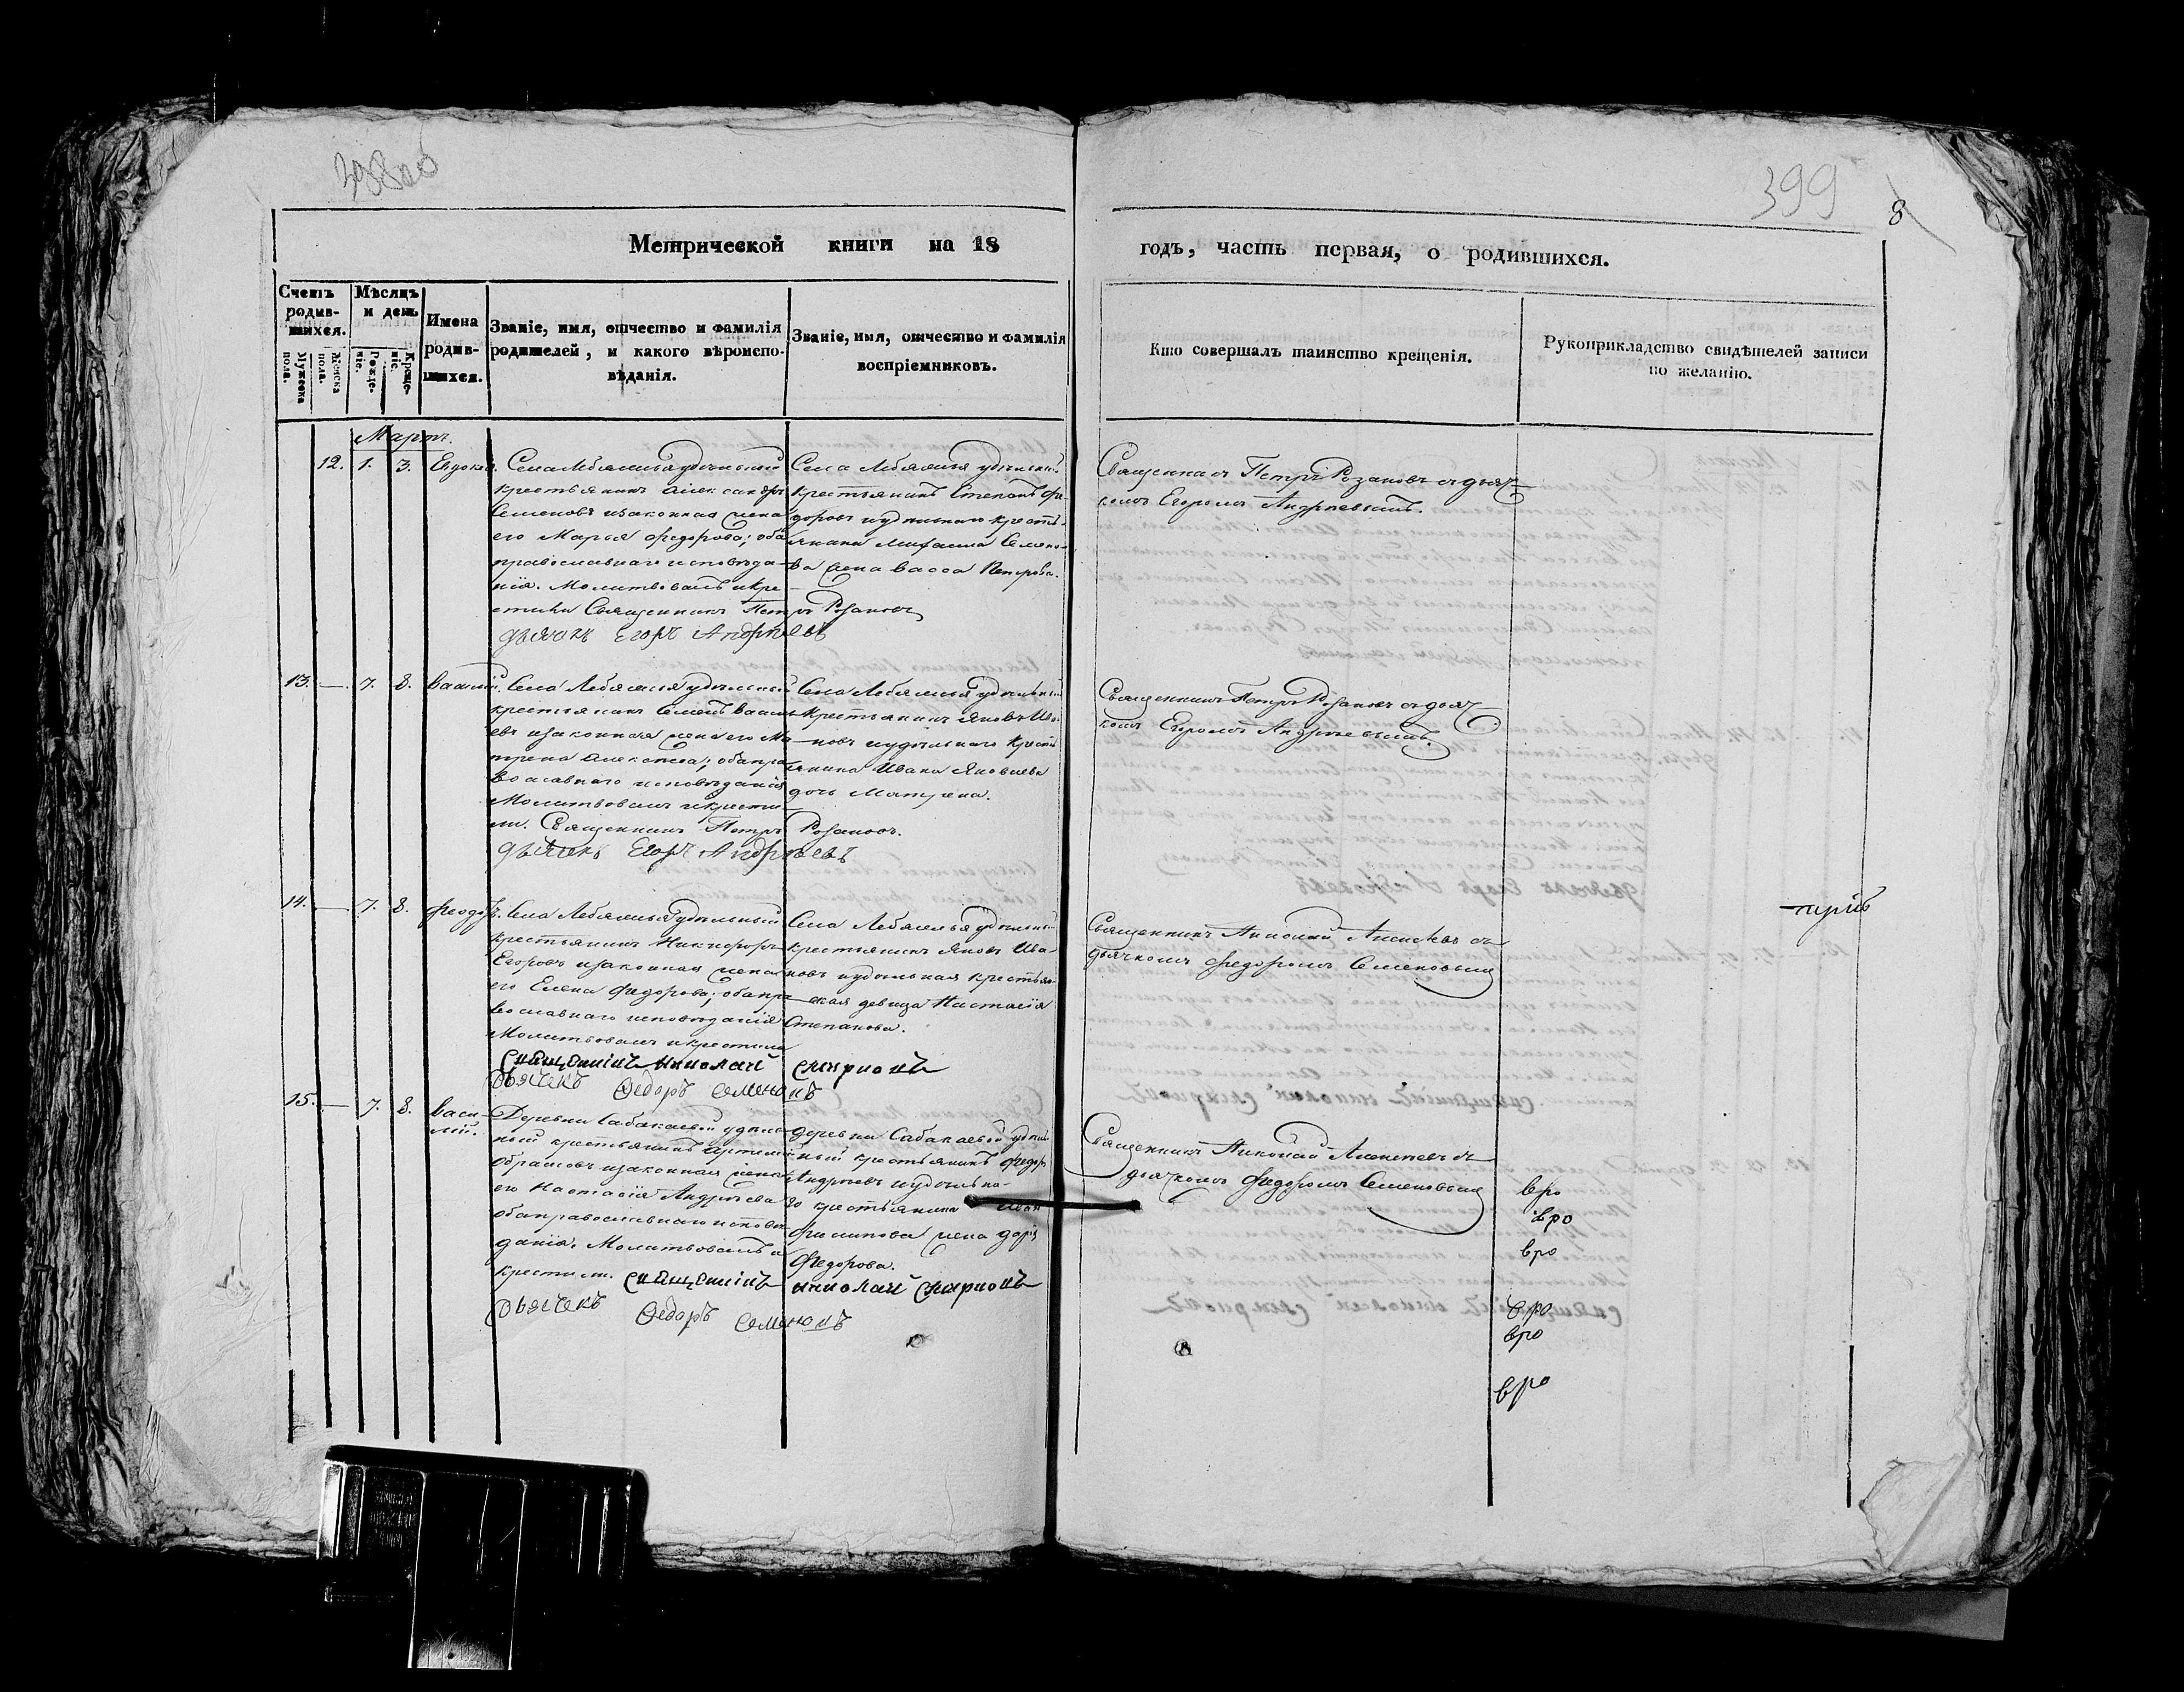 398об
399
8
Метрической книги на 18
годъ, часть первая, о родившихся.
Счетъ родив-шихся.
Мужеска пола.
Женска пола.
Мѣсяцъ и день
Рожде-ніе.
Креще-ніе.
Имена родив-шихся.
Званіе, имя, отчество и фамилія родителей, и какого вѣроиспо-вѣданія.
Званіе, имя, отчество и фамилія воспріемниковъ.
Кто совершалъ таинство крещенія.
Рукоприкладство свидѣтелей записи по желанію.
Мартъ.
12. 1. 3.
Села Лебяжья удѣльный
крестьянинъ Александръ
Семеновъ и законная жена
его Марья Федорова; оба
православнаго исповѣда-
нія. Молитвовалъ и кре-
стили Священникъ Петръ Розановъ
дьячекъ Егоръ Андрѣевъ
Села Лебяжья удѣльный
крестьянинъ Степанъ Фе-
доровъ и удѣльнаго кресть-
янина Михаила Семено-
ва жена Васса Петрова.
Петръ Розановъ съ дьяч-
комъ Егоромъ Андрѣевымъ.
13. — 7. 8. Василій.
Села Лебяжья удѣльный
крестьянинъ Семенъ Василь-
евъ и законная жена его Ма-
трена Алексѣева; оба пра-
вославнаго исповѣданія
Молитвовалъ и крести-
ли. Священникъ Петръ Розановъ.
дьячекъ Егоръ Андрѣевъ
Села Лебяжья удѣльный
крестьянинъ Яковъ Ива-
новъ и удѣльнаго кресть-
янина Ивана Яковлева
дочь Матрена.
Священникъ Петръ Розановъ съ дьяч-
комъ Егоромъ Андрѣевымъ.
14. — 7. 8. Феодоръ.
Села Лебяжья удѣльный
крестьянинъ Никифоръ
Егоровъ и законная жена
его Елена Федорова; оба пра-
вославнаго исповѣданія
Молитвовалъ и крестили
Священникъ Николай Смирновъ
Дьячекъ Федоръ Семеновъ
Села Лебяжья удѣльный
крестьянинъ Яковъ Ива-
новъ и удѣльная крестьян-
ская девица Настасія
Степанова.
Священникъ Николай Алексѣевъ съ
дьячкомъ Федоромъ Семеновымъ
15. — 7. 8. Васи-
лій.
Деревни Сабакаевой удѣль-
ный крестьянинъ Артемій
Абрамовъ и законная жена
его Настасія Андрѣева
оба православнаго исповѣ-
данія. Молитвовалъ и
крестили. Священникъ Николай Смирновъ
Дьячекъ Федоръ Семеновъ
деревни Сабакаевой удѣль-
ный крестьянинъ Федоръ
Андрѣевъ и удѣльна-
го крестьянина Иван
Филипова жена Дарья
Федорова.
Священникъ Николай Алексѣевъ съ
дьячкомъ Федоромъ Семеновымъ
вро
вро
вро
вро
вро
вро
8